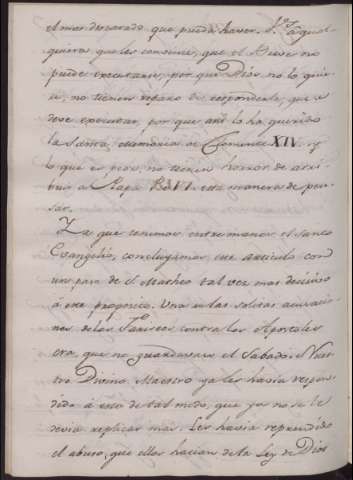 el mas descarado que pueda haver. Y a qual
quiera, que les convence, que el Breve no
puede executarse, por que Dios no lo quie
re, no tienen reparo de responderle, que se
deve executar, por que assi lo ha querido
la Santa memoria de Clemente XIV. y
lo que es peor, no tienen horror de atri
buir a Papa esta manera de pen
sar.
Ya que tenemos entre manos el Santo
Evangelio, concluygamos este articulo con
un paso de S. Matheo tal vez mas decisivo
à este proposito. Una de las solitas acusacio
nes de los Fariseos contra los Apostoles
era, que no guardavan el Sabado. Nues
tro Divino Maestro ya les havia respon
dido à esto de tal modo, que ya no se le
devia replicar mas. Les havia reprendido
el abuso, que ellos hacian de la Ley de Dios